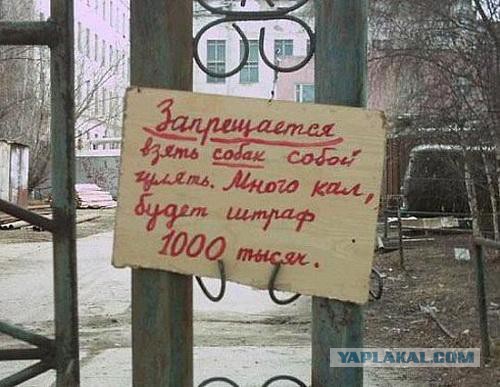 Запрещается
взять собак собой
гулять. Много кал,
будет штраф
1000 тысяч.
YAPLAKAL.COM